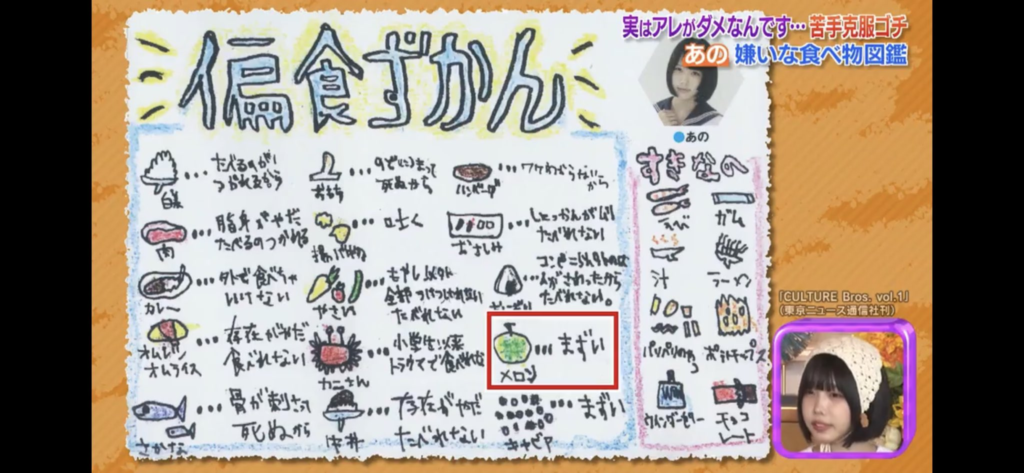 実はアレがダメなんです…苦手克服ゴチ
あの 嫌いな食べ物図鑑
偏食ずかん
●あの
白米
…たべるのが
つかれるから
おもち
…のどにつまって
死ぬから
ハンバーグ
…ワケわからないから
肉
…脂身がやだ
たべるのつかれる
揚げ物
…吐く
おさしみ
…しょっかんがムリ
たべれない
カレー
…外で食べちゃ
いけない
やさい
…もやし以外
全部
たべれない
コンビニ以外のは
たべれない。
オムライス
…存在がやだ
食べれない
カニさん
…小学生以来
トラウマで食べれない
メロン
…まずい
さかな
…骨が刺さって
死ぬから
牛丼
…存在がやだ
たべれない
キャビア
…まずい
すきなの
えび
ガム
汁
ラーメン
パリパリのり
ポテトチップス
ウイダーゼリー
チョコレート
「CULTURE Bros. vol.1」
(東京ニュース通信社刊)